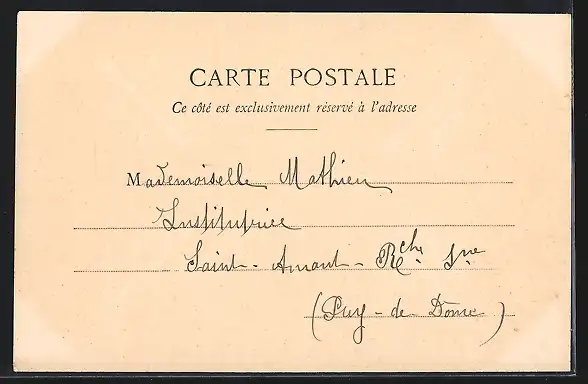 CARTE POSTALE
Ce côté est exclusivement réservé à l'adresse
Mademoiselle Mathieu
Institutrice
Saint-Amant-Rche Sne
(Puy-de Dome)